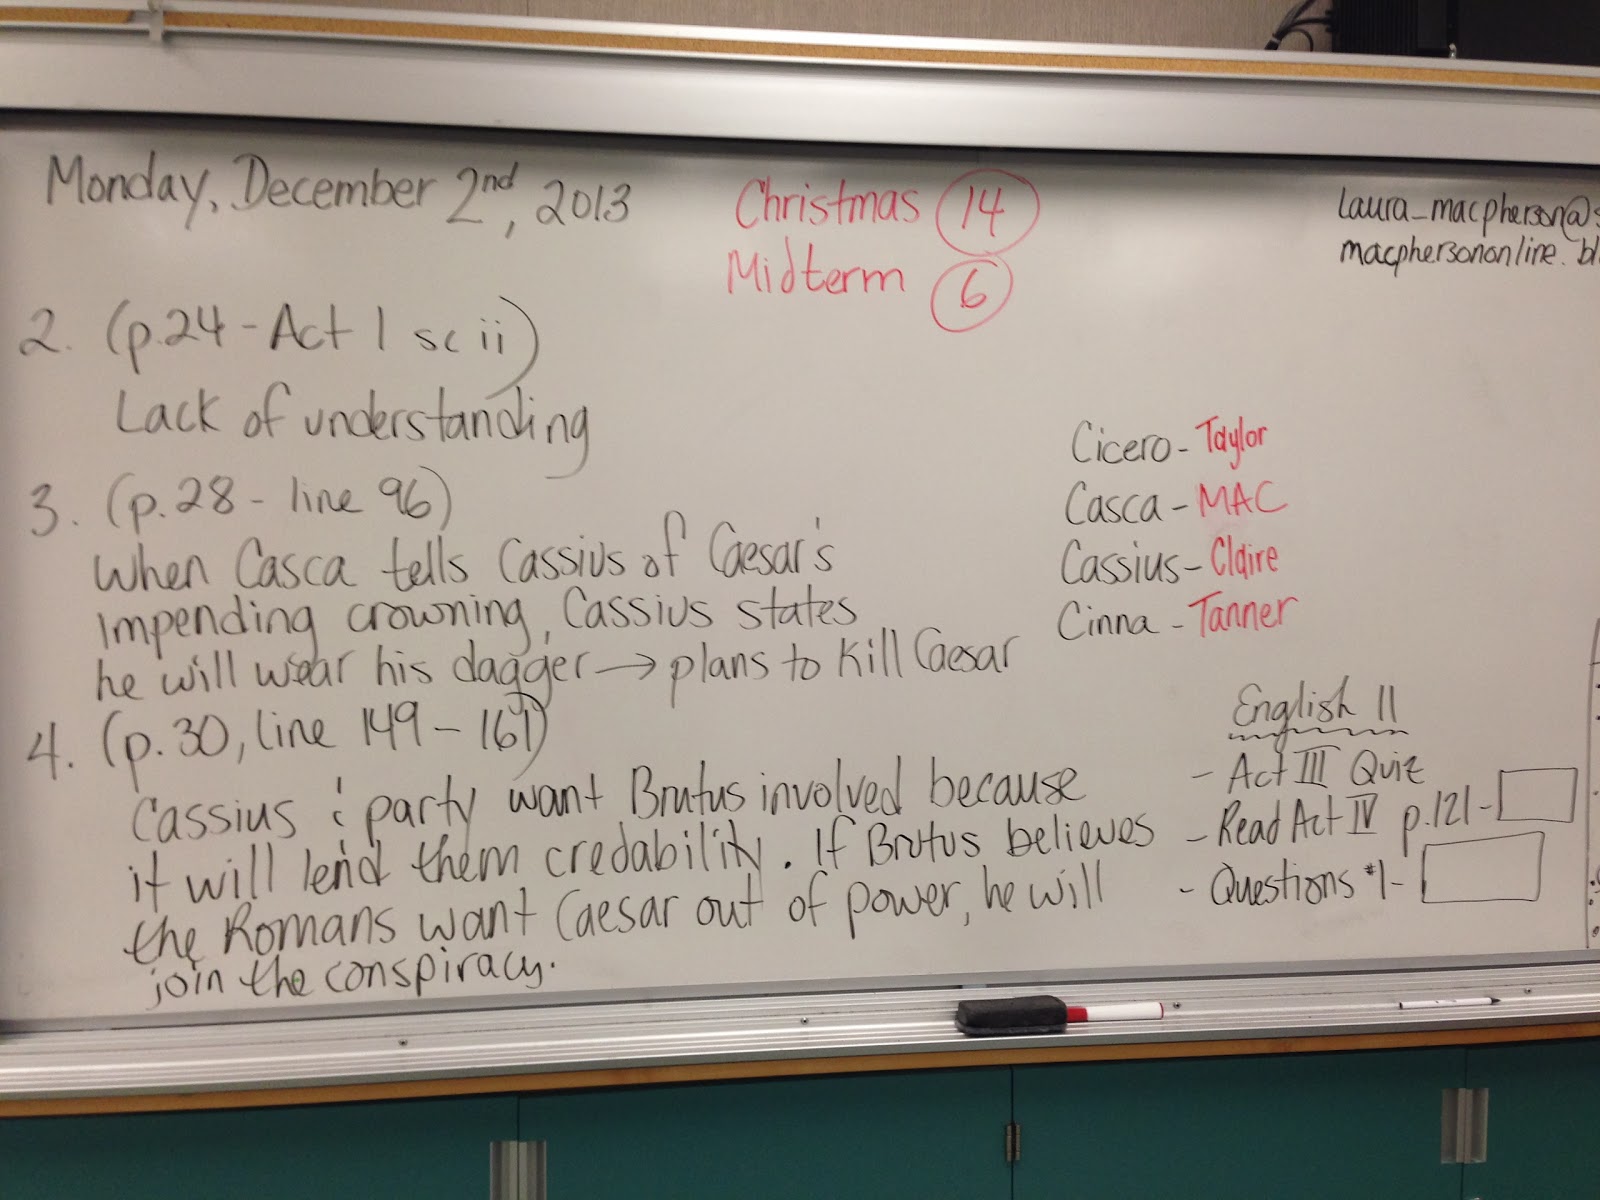 Monday, December 2nd, 2013
Christmas 14
Midterm 6
laura_macpherson@s
macphersononline.bl
2. (p.24 - Act 1 sc ii)
Lack of understanding
3. (p.28 - line 96)
When Casca tells Cassius of Caesar's
impending crowning, Cassius states
he will wear his dagger → plans to kill Caesar
4. (p.30, line 149 - 161)
Cassius & party want Brutus involved because
it will lend them credability. If Brutus believes
the Romans want Caesar out of power, he will
join the conspiracy.
Cicero - Taylor
Casca - MAC
Cassius - Claire
Cinna - Tanner
English 11
- Act III Quiz
- Read Act IV p.121 -
- Questions #1 -